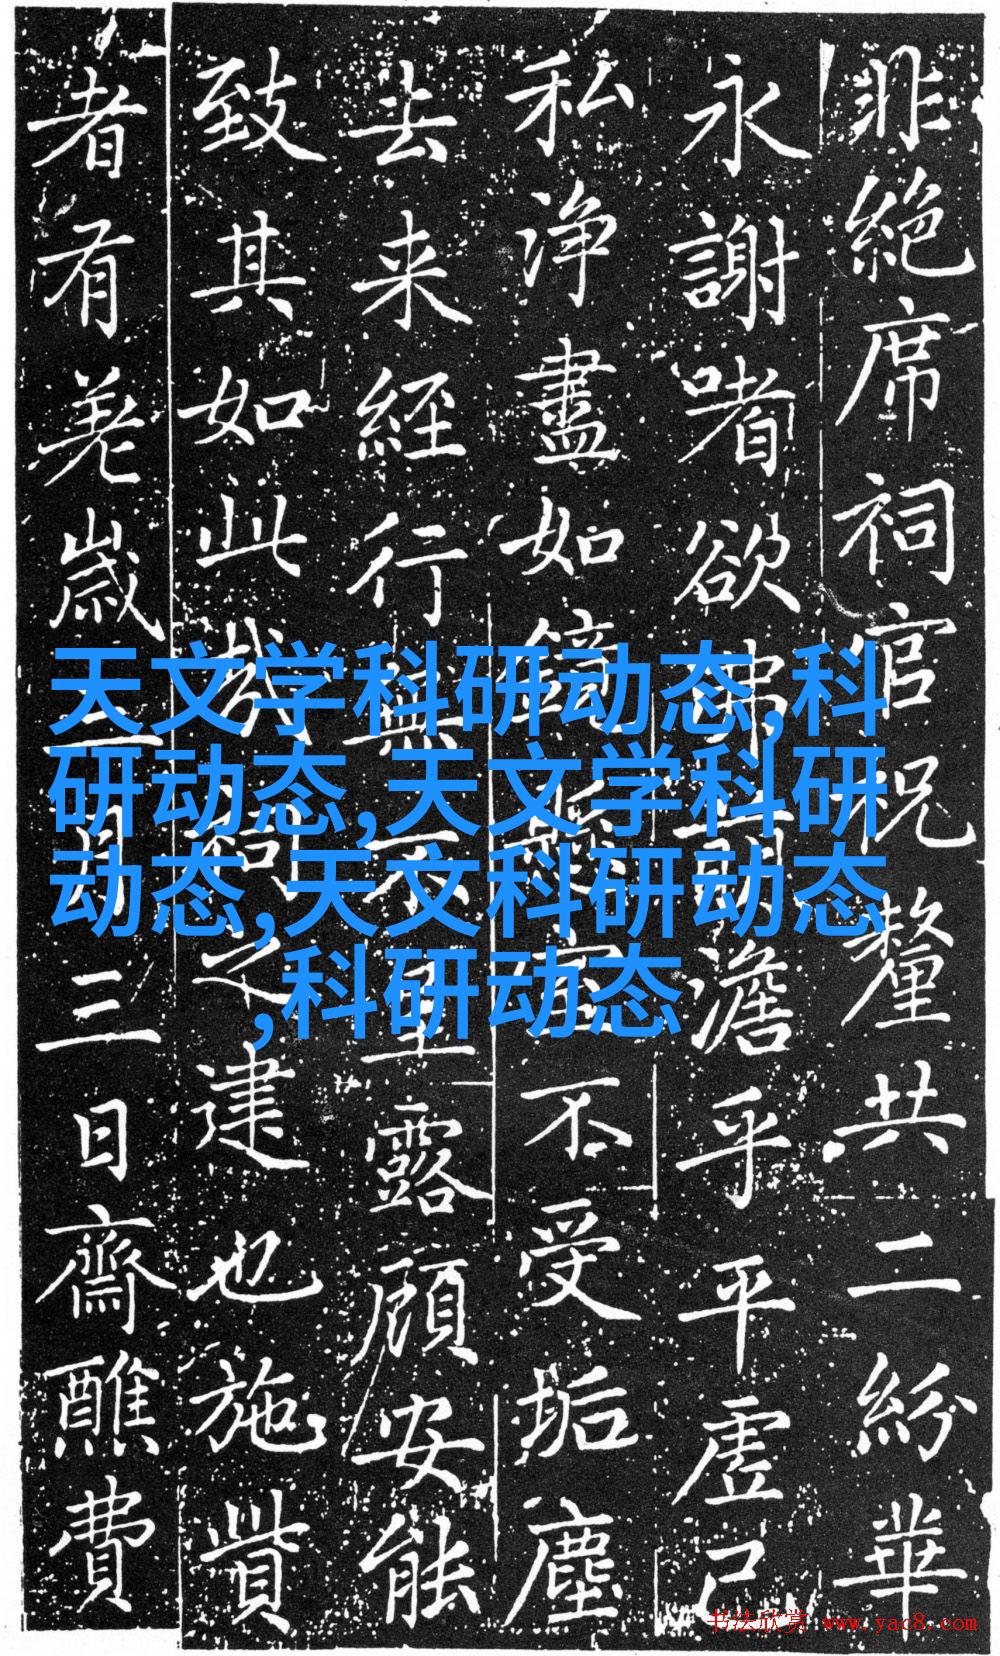 非絶席祠官祝釐共二紛華
永謝嗜欲澹乎平虛己
私淨盡如鏡不受垢塵
去来経行無露顧安能
致其如此哉之建也施貲
者有羌歲三日齋醮費
天文学科研动态,科
研动态,天文学科研
动态,天文科研动态
,科研动态
书法欣赏 www.yac8.com